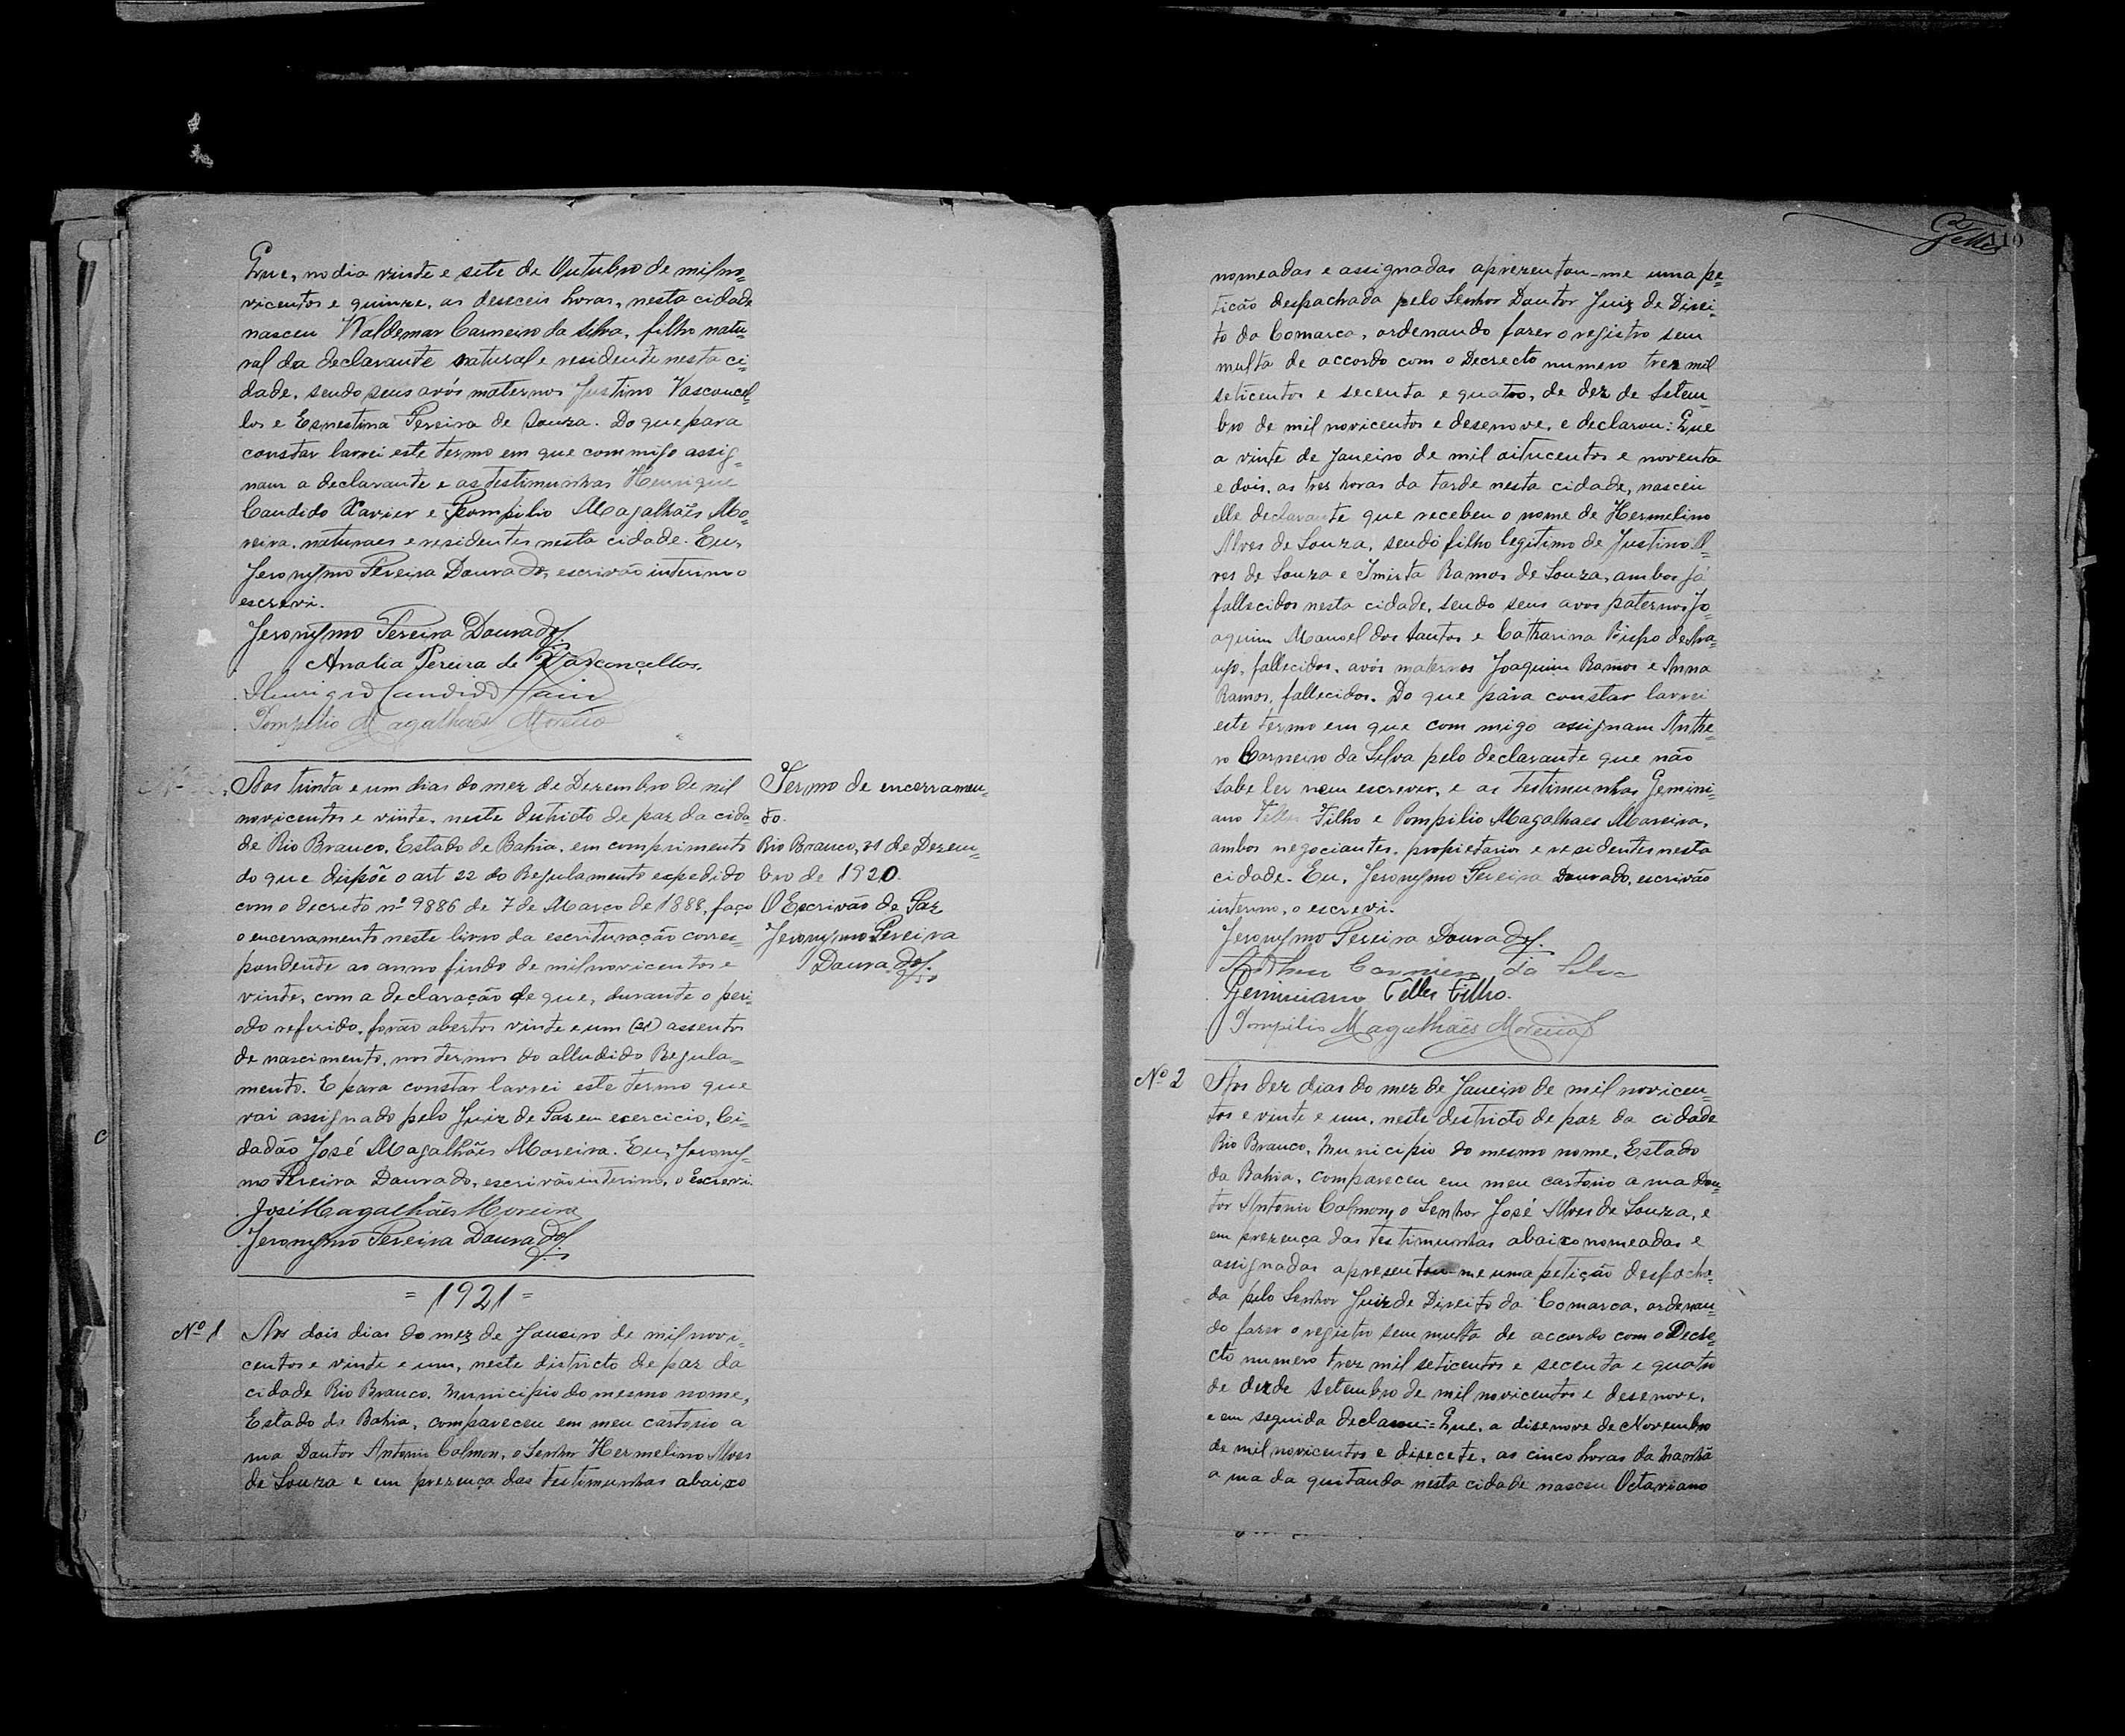 Que, no dia vinte e sete de Outubro de mil no-
vicentos e quinze, as deseceis horas, nesta cidade
nasceu Waldemar Carneiro da Silva, filho natu-
ral da declarante natural e residente nesta ci-
dade, sendo seus avós maternos Justino Vasconcel-
los e Ernestina Pereira de Souza. Do que para
constar lavrei este termo em que commigo assig-
nam a declarante e as testimunhas Henrique
Candido Xavier e Pompilio Magalhães Mo-
reira, naturaes e residentes nesta cidade. Eu,
Jeronymo Pereira Dourado, escrivão interino o
escrevi.
Jeronymo Pereira Dourado.
Analia Pereira de Vasconcellos.
Henrique Candido
Pompilio Magalhães Moreira
Aos trinta e um dias do mez de Dezembro de mil
novicentos e vinte, neste districto de paz da cida-
de Rio Branco, Estado de Bahia, em comprimento
do que dispõe o art 22 do Regulamento expedido
com o decreto nº 9886 de 7 de Março de 1888, faço
o encerramento neste livro da escrituração corres-
pondente ao anno findo de mil novicentos e
vinte, com a declaração de que, durante o peri-
odo referido, forão abertos vinte e um (21) assentos
de nascimento, nos termos do alludido Regula-
mento. E para constar lavrei este termo que
vai assignado pelo Juiz de Paz em exercicio, Ci-
dadão José Magalhães Moreira. Eu, Jerony-
mo Pereira Dourado, escrivão interino, o Escrevi.
José Magalhães Moreira
Jeronymo Pereira Dourado.
Termo de encerramen-
to.
Rio Branco, 31 de Dezem-
bro de 1920.
O Escrivão de Paz
Jeronymo Pereira
Dourado.
= 1921 =
Nº 1
Aos dois dias do mez de Janeiro de mil novi-
centos e vinte e um, neste districto de paz da
cidade Rio Branco, Municipio do mesmo nome,
Estado da Bahia, compareceu em meu cartorio a
rua Doutor Antonio Calmon, o Senhor Hermelino Alves
de Souza e em prezença das testimunhas abaixo
Telles 110
nomeadas e assignadas aprezentou-me uma pe-
tição despachada pelo Senhor Doutor Juiz de Direi-
to da Comarca, ordenando fazer o registro sem
multa de accordo com o Decrecto numero trez mil
seticentos e secenta e quatro, de dez de Setem-
bro de mil novicentos e desenove, e declarou: Que
a vinte de Janeiro de mil oitucentos e noventa
e dois, as tres horas da tarde nesta cidade, nasceu
elle declarante que recebeu o nome de Hermelino
Alves de Souza, sendo filho legitimo de Justino Al-
ves de Souza e Ramos de Souza, ambos já
fallecidos nesta cidade, sendo seus avos paternos Jo
aquim Manoel dos Santos e Catharina Bispo de Ara-
ujo, fallecidos, avós maternos Joaquim Ramos e Anna
Ramos, fallecidos. Do que para constar lavrei
este termo em que com migo assignam Anthe-
ro Carneiro da Silva pelo declarante que não
sabe ler nem escrever, e as testimunhas Gemini-
ano Telles Filho e Pompilio Magalhaes Moreira,
ambos negociantes, propietarios e residentes nesta
cidade. Eu, Jeronymo Pereira Dourado, escrivão
interino, o escrevi.
Jeronymo Pereira Dourado.
Anthero Carneiro da Silva
Geminiano Telles Filho.
Pompilio Magalhães Moreira
Nº 2
Aos dez dias do mez de Janeiro de mil novicen-
tos e vinte e um, neste destricto de paz da cidade
Rio Branco, Municipio do mesmo nome, Estado
da Bahia, compareceu em meu cartorio a rua Dou-
tor Antonio Calmon, o Senhor José Alves de Souza, e
em prezença das testimunhas abaixo nomeadas e
assignadas apresentou-me uma petição despacha-
da pelo Senhor Juiz de Direito da Comarca, ordenan-
do fazer o registro sem multa de accordo com o Decre-
cto numero trez mil seticentos e secenta e quatro
de dez de Setembro de mil novicentos e desenove,
e em seguida declarou:= Que, a disenove de Novembro
de mil novicentos e disecete, as cinco horas da manhã
a rua da quitanda nesta cidade nasceu Octaviano